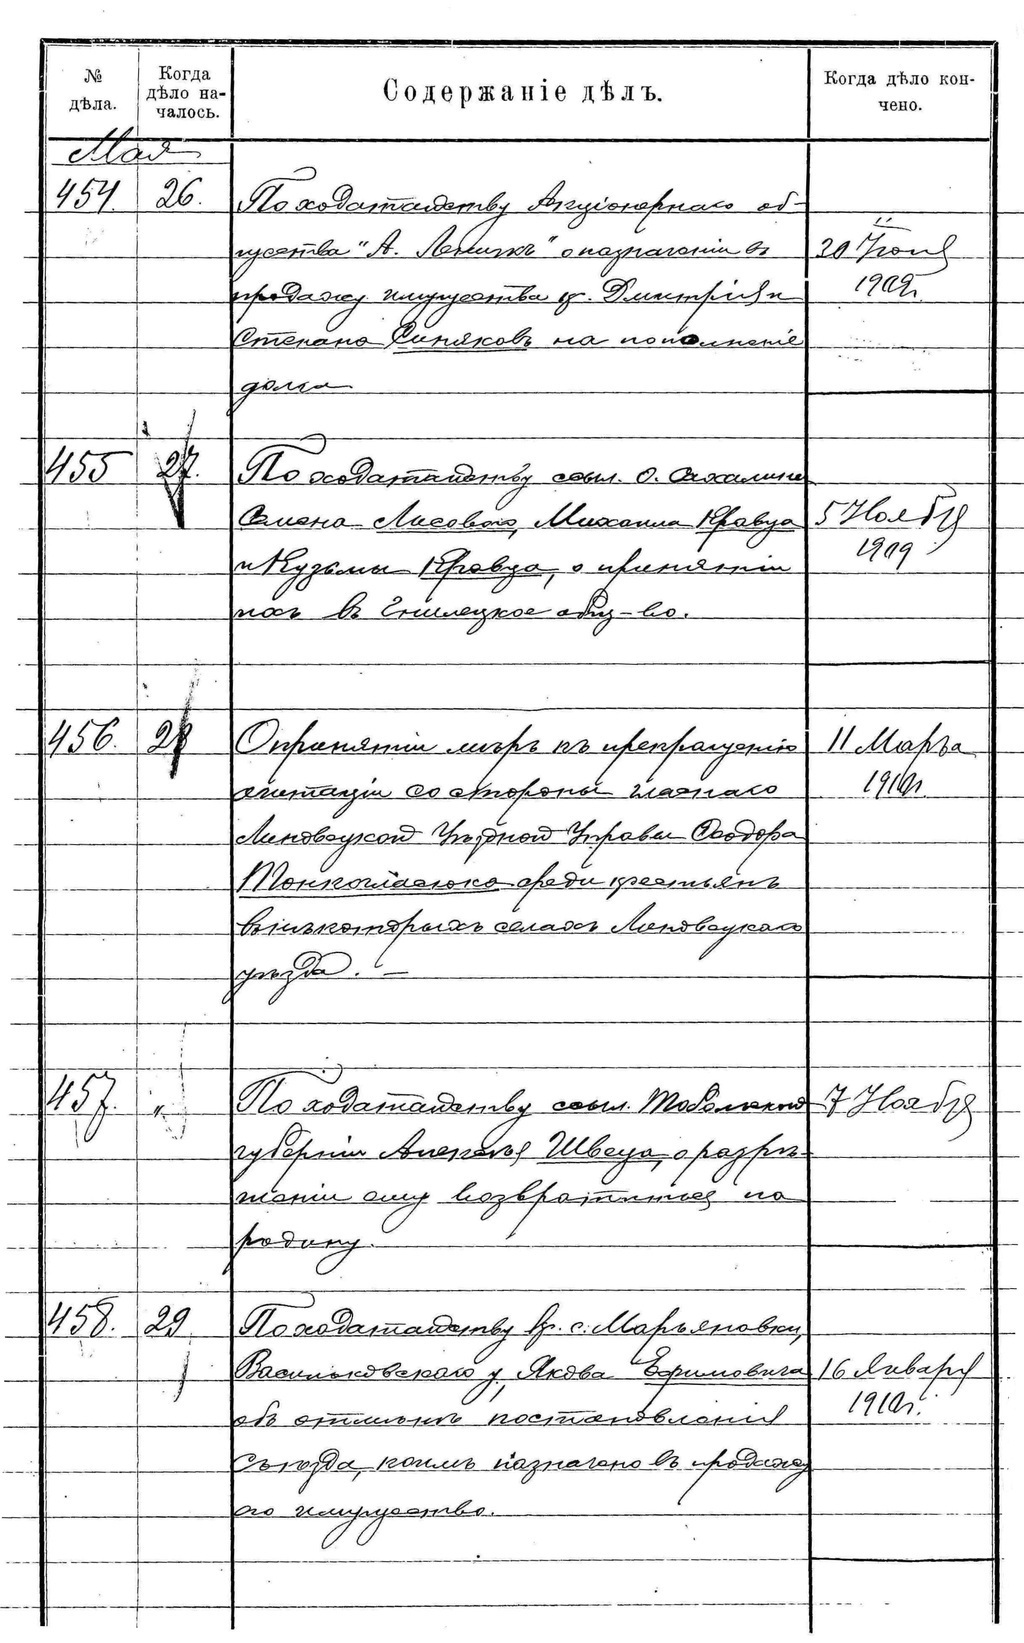 № дѣла.
Когда дѣло началось.
Содержаніе дѣлъ.
Когда дѣло кончено.
Мая
454. 26. По ходатайству Акціонернаго об-
щества "А. " о назначеніи въ 20 Іюня
продажу имущества кр. Дмитрія и 1909г.
Степана Синяковъ на пополненіе
долга
455 27. По ходатайству ссыл. о. Сахалина
Семена Лисового, Михаила Кравца 5 Ноября
и Кузьмы Кравца, о принятіи 1909
ихъ въ Гнилецкое общ-во.
456. 28 О принятіи мѣръ къ прекращенію 11 Марта
агитаціи со стороны гласнаго 1910г.
Липовецкой Уѣздной Управы Ѳеодора
Тонкогласюка среди крестьянъ
в нѣкоторыхъ селахъ Липовецкаго
уѣзда. —
457. " По ходатайству ссыл. Тобольской 7 Ноября
губерніи Алексѣя Швеца, о разрѣ-
шеніи ему возвратиться на
родину.
458. 29 По ходатайству кр. с. Марьяновки,
Васильковскаго у, Якова Ефимовича 16 Января
объ отмѣнѣ постановленія 1910г.
Съѣзда, коимъ назначено въ продажу
его имущество.